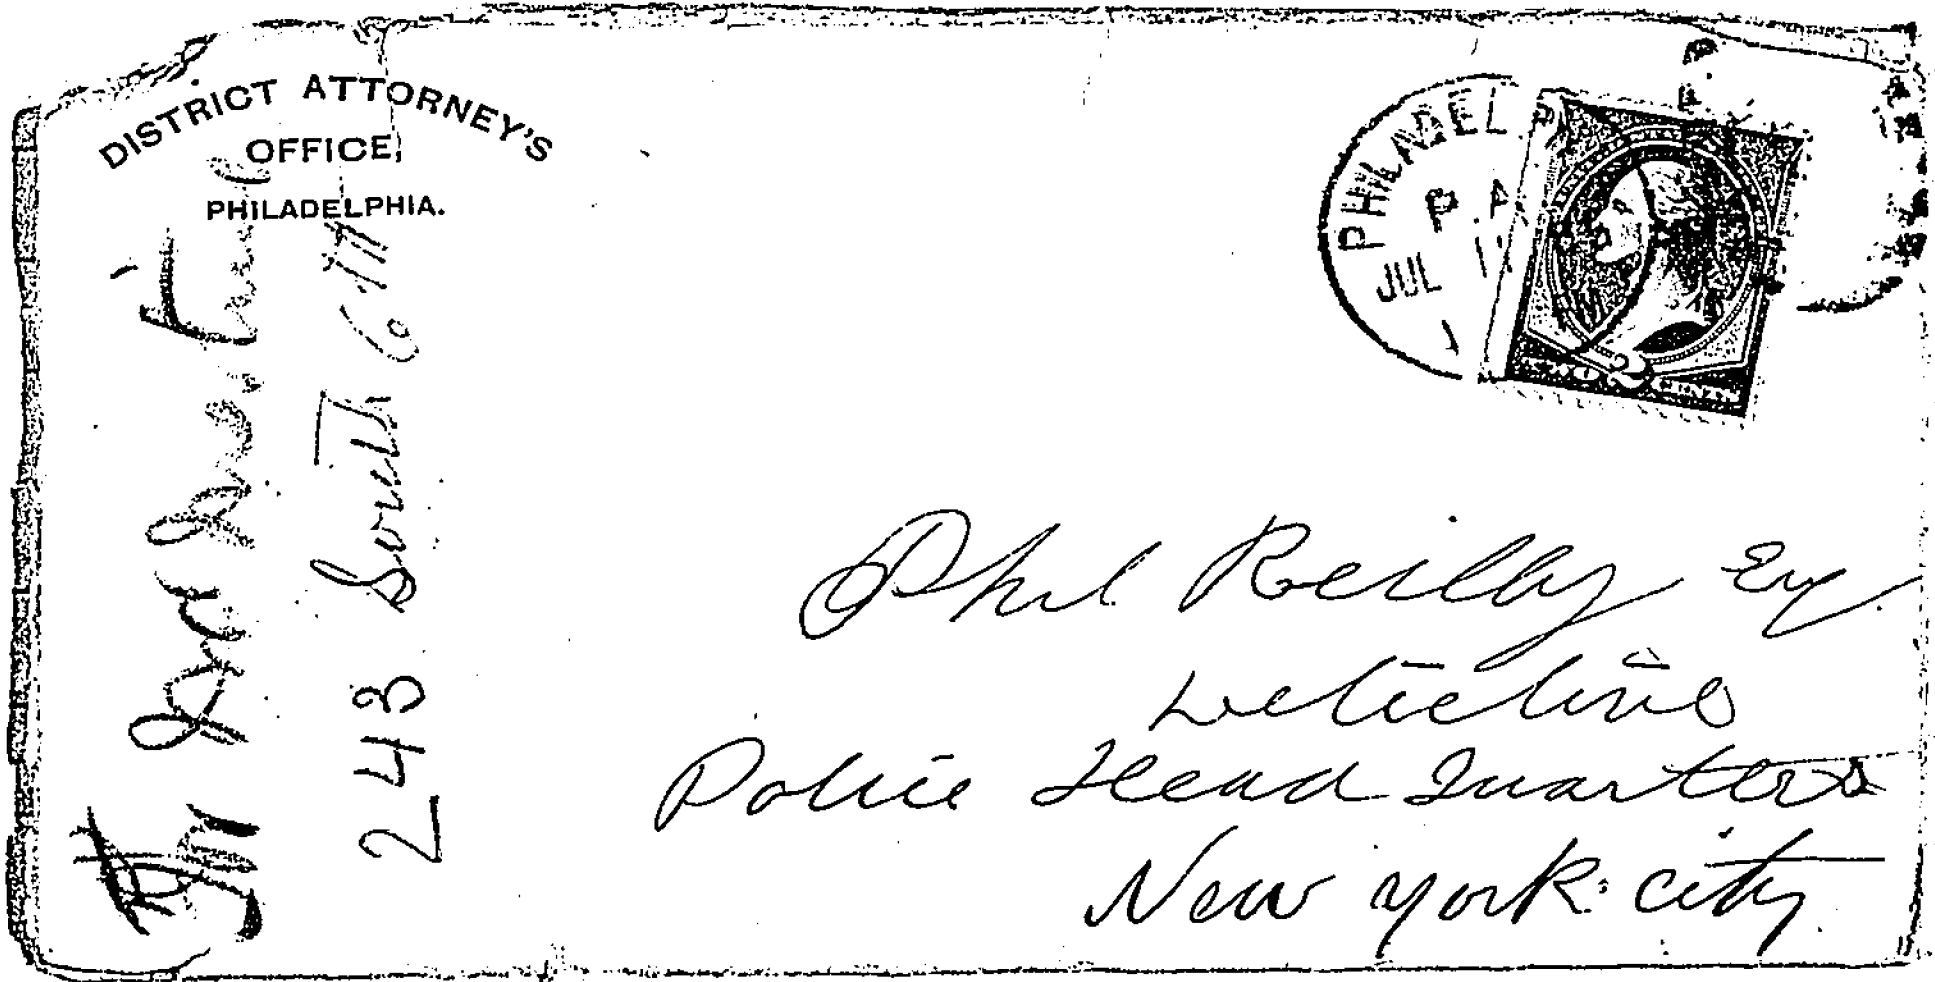 DISTRICT ATTORNEY'S
OFFICE,
PHILADELPHIA.
PHILADEL
P A
JUL
2
Phil Reilly Esq.
Detective
Police Head Quarters
New York City
243 South 6th